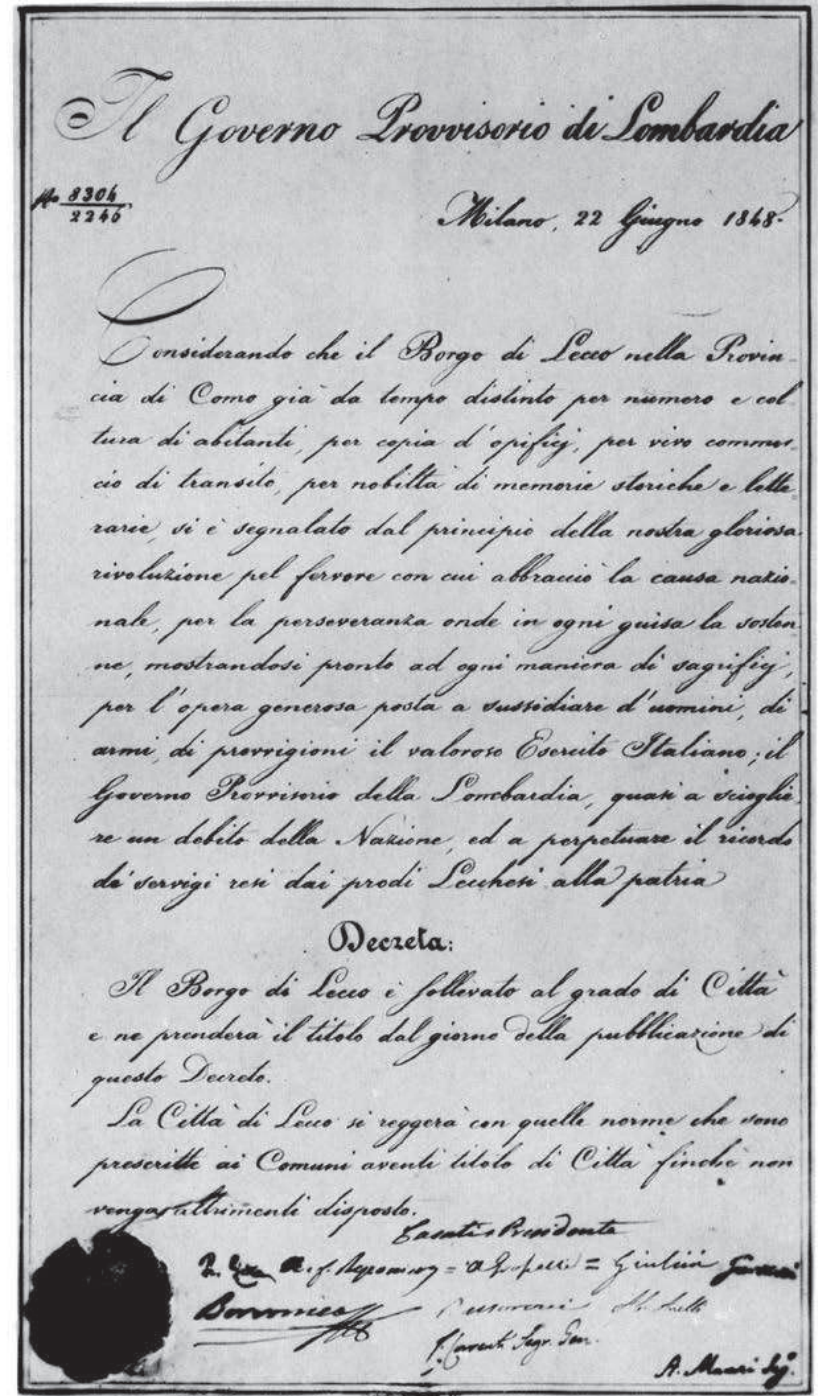 Il Governo Provvisorio di Lombardia
No 8304
2246
Milano, 22 Giugno 1848.
Considerando che il Borgo di Lecco nella Provin-
cia di Como già da tempo distinto per numero e col-
tura di abitanti, per copia d'opificj, per vivo commer-
cio di transito, per nobiltà di memorie storiche e lette-
rarie, si è segnalato dal principio della nostra gloriosa
rivoluzione pel fervore con cui abbracciò la causa nazio-
nale, per la perseveranza onde in ogni guisa la sosten-
ne, mostrandosi pronto ad ogni maniera di sagrificj,
per l'opera generosa posta a sussidiare d'uomini, di
armi, di provvigioni il valoroso Esercito Italiano; il
Governo Provvisorio della Lombardia, quasi a scioglie-
re un debito della Nazione, ed a perpetuare il ricordo
de' servigi resi dai prodi Lecchesi alla patria
Decreta:
Il Borgo di Lecco è sollevato al grado di Città
e ne prenderà il titolo dal giorno della pubblicazione di
questo Decreto.
La Città di Lecco si reggerà con quelle norme che sono
prescritte ai Comuni aventi titolo di Città finchè non
venga altrimenti disposto.
Casati Presidente
Giulini
Borromeo
Segr. Gen.